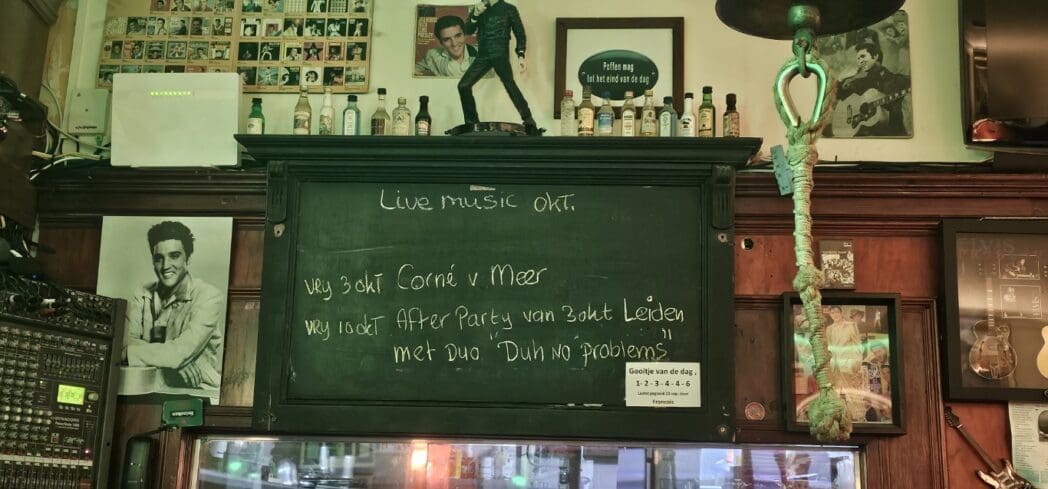 Paffen mag
tot het eind van de dag
Live music okt.
vry 3 okt Corné v Meer
vry 10 okt After Party van 3 okt Leiden
met Duo "Duh No problems"
Gooitje van de dag ,
1- 2 - 3 - 4 - 4 - 6
ELVIS